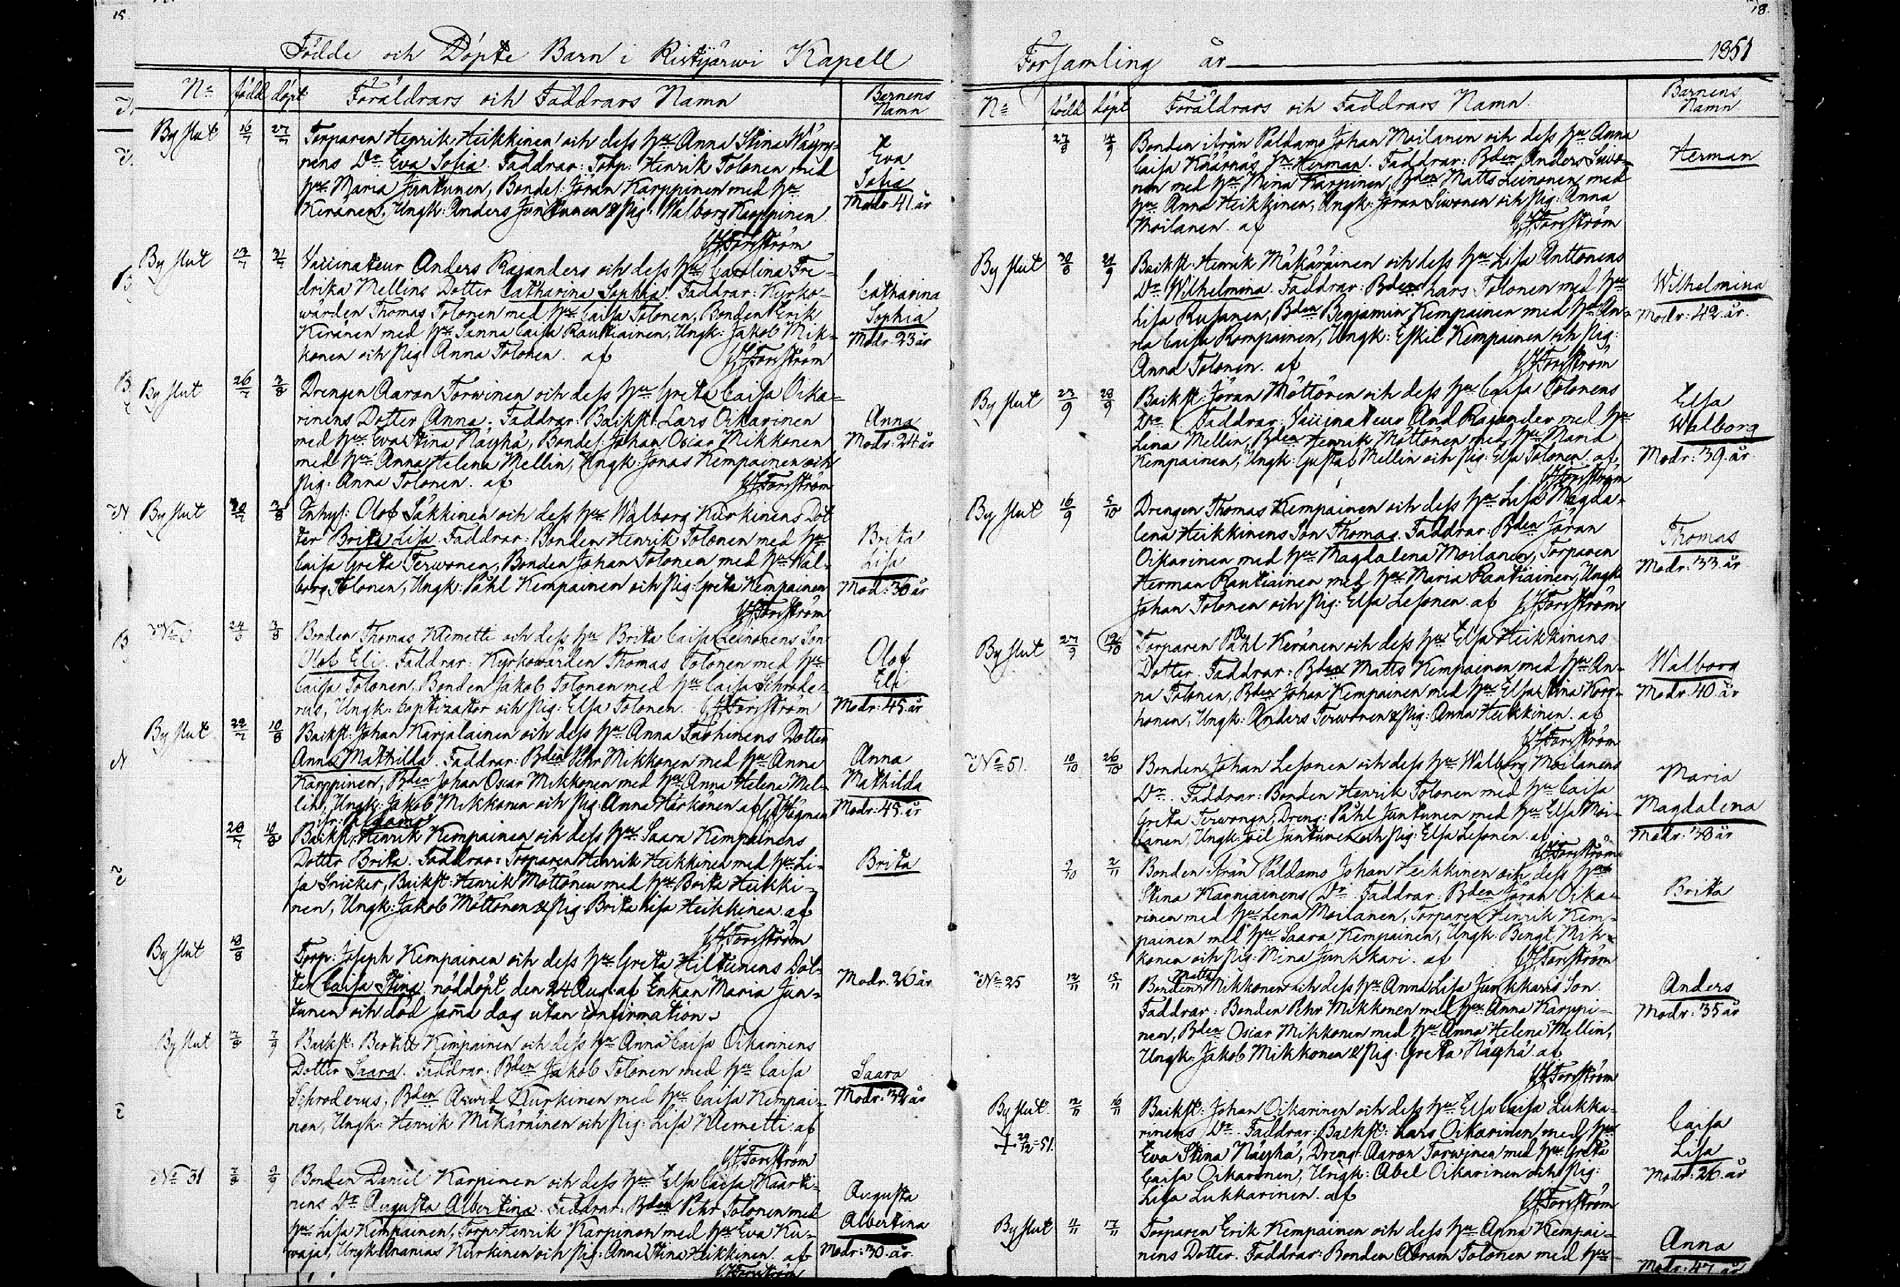 15.
18.
Födde och Döpte Barn i Ristijärwi Kapell
Församling år 1851
No född döpt Föräldrars och Faddrars Namn Barnens Namn
By slut 16/7 27/7 Torparen Henrik Heikkinen och dess Hu Anna Stina Wäyry-
nens Dr Eva Sofia. Faddrar: Torp: Henrik Tolonen med
Hu Maria Juntunen, Bondes: Jöran Karppinen med Hu
Keränen, Ungk: Anders Juntunen & Pig: Walborg Karppinen
Forsström
Eva
Sofia
Modr 41 år
By slut 17/7 Vaccinateur Anders Rajanders och dess Hu Carolina Fre-
drika Mellins Dotter Catharina Sophia. Faddrar: Kyrko-
wärden Thomas Tolonen med Hu Caisa Tolonen, Bonden Erik
Keränen med Hu Sanna Caisa Rautiainen, Ungk: Jakob Mik-
konen och Pig Anna Tolonen. af
Forsström
Catharina
Sophia
Modr: 23 år
By slut 26/7 3/8 Drengen Aaron Torwinen och dess Hu Greta Caisa Oika-
rinens Dotter Anna. Faddrar: Backst: Lars Oikarinen
med Hu Eva Stina Näyhä, Bondes: Johan Oscar Mikkonen
med Hu Anna Helena Mellin, Ungk: Jonas Kempainen och
Pig: Anna Tolonen. af Forsström
Anna
Modr: 24 år
By slut 3/8 Inhys: Olof Säkkinen och dess Hu Walborg Kurkinens Dot
ter Brita Lisa. Faddrar: Bonden Henrik Tolonen med Hu
Caisa Greta Terwonen, Bonden Johan Tolonen med Hu Wal-
borg Tolonen, Ungk: Påhl Kempainen och Pig: Greta Kempainen
Forsström
Brita
Lisa
Mod: 36 år
Bonden Thomas Klemetti och dess Hu Brita Caisa Leinonens Son
Olof Eli. Faddrar: Kyrkowärden Thomas Tolonen med Hu
Caisa Tolonen, Bonden Jakob Tolonen med Hu Caisa Schrode-
rus, Ungk: Baptizator och Pig: Elsa Tolonen. Forsström
Olof
Eli
Modr: 45 år
By slut 10/8 Backst: Johan Karjalainen och dess Hu Anna Tachinens Dotter
Anna Mathilda. Faddrar: Bden Pehr Mikkonen med Hu Anna
Karppinen, Bden Johan Oscar Mikkonen med Hu Anna Helena Mel-
lin, Ungk: Jakob Mikkonen och Pig: Anna Härkönen af
Anna
Mathilda
Modr: 45 år
28/7 10/8 Backst: Henrik Kempainen och dess Hu Saara Kempainens
Dotter Brita. Faddrar: Torparen Henrik Heikkinen med Hu Li-
sa Snicker, Backst: Henrik Möttönen med Hu Brita Heikki-
nen, Ungk: Jakob Möttönen & Pig: Brita Lisa Heikkinen. af
Forsström
Brita
By slut Torp: Joseph Kempainen och dess Hu Greta Hiltunens Dot-
ter Caisa Stina nöddöpt den 24 Aug: af Enkan Maria Jun-
tunen och död samma dag utan confirmation.
Modr: 26 år
By slut 7/9 Backst: Bertill Kimpainen och dess Hu Anna Caisa Oikarinens
Dotter Saara. Faddrar: Bden Jakob Tolonen med Hu Caisa
Schroderus, Bden Arwid Kurkinen med Hu Caisa Kempai-
nen, Ungk: Henrik Mäkäräinen och Pig: Lisa Klemetti. af
Forsström
Saara
Modr: 32 år
No 31 Bonden Daniel Karpinen och dess Hu Elsa Caisa Kaarti-
nens Dr Augusta Albertina. Faddrar: Bden Pehr Tolonen med
Hu Lisa Kempainen, Torp: Henrik Karppinen med Hu Eva Ku-
wajat, Ungk: Ananias Kurkinen och Pig: Anna Stina Heikkinen. af
Forsström
Augusta
Albertina
Modr: 30 år
No född döpt Föräldrars och Faddrars Namn. Barnens Namn
27/8 14/9 Bonden ifrån Paldamo Johan Moilanen och dess Hu Anna
Caisa Hu Herman. Faddrar: Bden Anders Siwo-
nen med Hu Mina Karpinen, Bden Matts Leinonen, med
Hu Anna Heikkinen, Ungk: Jöran Siwonen och Pig: Anna
Moilanen. af Forsström
Herman
By slut 30/8 21/9 Backst: Henrik Mäkäräinen och dess Hu Lisa Anttonens
Dr Wilhelmina. Faddrar: Bden Lars Tolonen med Hu
Lisa Rusanen, Bden Benjamin Kempainen med Hu An-
na Caisa Rompainen, Ungk: Eskel Kempainen och Pig:
Anna Tolonen. af Forsström
Wilhelmina
Modr: 42 år.
By slut 28/9 Backst: Jöran Möttönen och dess Hu Caisa Tolonens
Dr Faddrar: Vaccinateur And Rajander med Hu
Lina Mellin, Bden Henrik Möttönen med Hu Maria
Kempainen, Ungk: Gustaf Mellin och Pig: Elsa Tolonen. af
Forsström
Elsa
Walborg
Modr: 39 år
By slut 16/9 5/10 Drengen Thomas Kempainen och dess Hu Lisa Magda-
lena Heikkinens Son Thomas. Faddrar: Bden Jöran
Oikarinen med Hu Magdalena Moilanen, Torparen
Herman Rautiainen med Hu Maria Rautiainen, Ungk
Johan Tolonen och Pig: Elsa Lesonen. af Forsström
Thomas
Modr: 33 år
By slut 27/9 Torparen Påhl Keränen och dess Hu Elsa Heikkinens
Dotter. Faddrar: Bden Matts Kimpainen med Hu An-
na Tolonen, Bden Johan Kempainen med Hu Elsa Stina Kor-
honen, Ungk: Anders Terwonen & Pig: Anna Heikkinen. af
Forsström
Walborg
Modr 40 år
No 51. 10/10 26/10 Bonden Johan Lesonen och dess Hu Walborg Moilanens
Dr. Faddrar: Bonden Henrik Tolonen med Hu Caisa
Greta Terwonen, Dreng: Påhl Juntunen med Hu Elsa Moi-
lanen, Ungk: Joel Juntunen och Pig: Elsa Lesonen. af
Forsström
Maria
Magdalena
Modr: 38 år
2/11 Bonden ifrån Paldamo Johan Heikkinen och dess Hu
Stina Karniainens Dr. Faddrar: Bden Jöran Oika-
rinen med Hu Lena Moilanen, Torparen Henrik Kem-
painen med Hu Saara Kempainen, Ungk: Bengt Mik-
konen och Pig: Mina Junkkari. af Forsström
Brita
No 25 12/11 15/11 Bonden Matts Mikkonen och dess Hu Anna Lisa Junkkaris Son.
Faddrar: Bonden Pehr Mikkonen med Hu Anna Karppi-
nen, Bden Oscar Mikkonen med Hu Anna Helena Mellin,
Ungk: Jakob Mikkonen & Pig: Greta Näyhä. af
Forsström
Anders
Modr: 35 år
By slut. 12/11 16/11 Backst: Johan Oikarinen och dess Hu Elsa Caisa Lukka-
rinens Dr. Faddrar: Backst: Lars Oikarinen med Hu
Eva Stina Näyhä, Dreng: Aaron Torwinen med Hu Greta
Caisa Oikarinen, Ungk: Abel Oikarinen och Pig:
Lisa Lukkarinen. af Forsström
Caisa
Lisa
Modr: 26 år
By slut 17/11 Torparen Erik Kempainen och dess Hu Anna Kempai-
nens Dotter. Faddrar: Bonden Abram Tolonen med Hu
Anna
Modr: 47 år